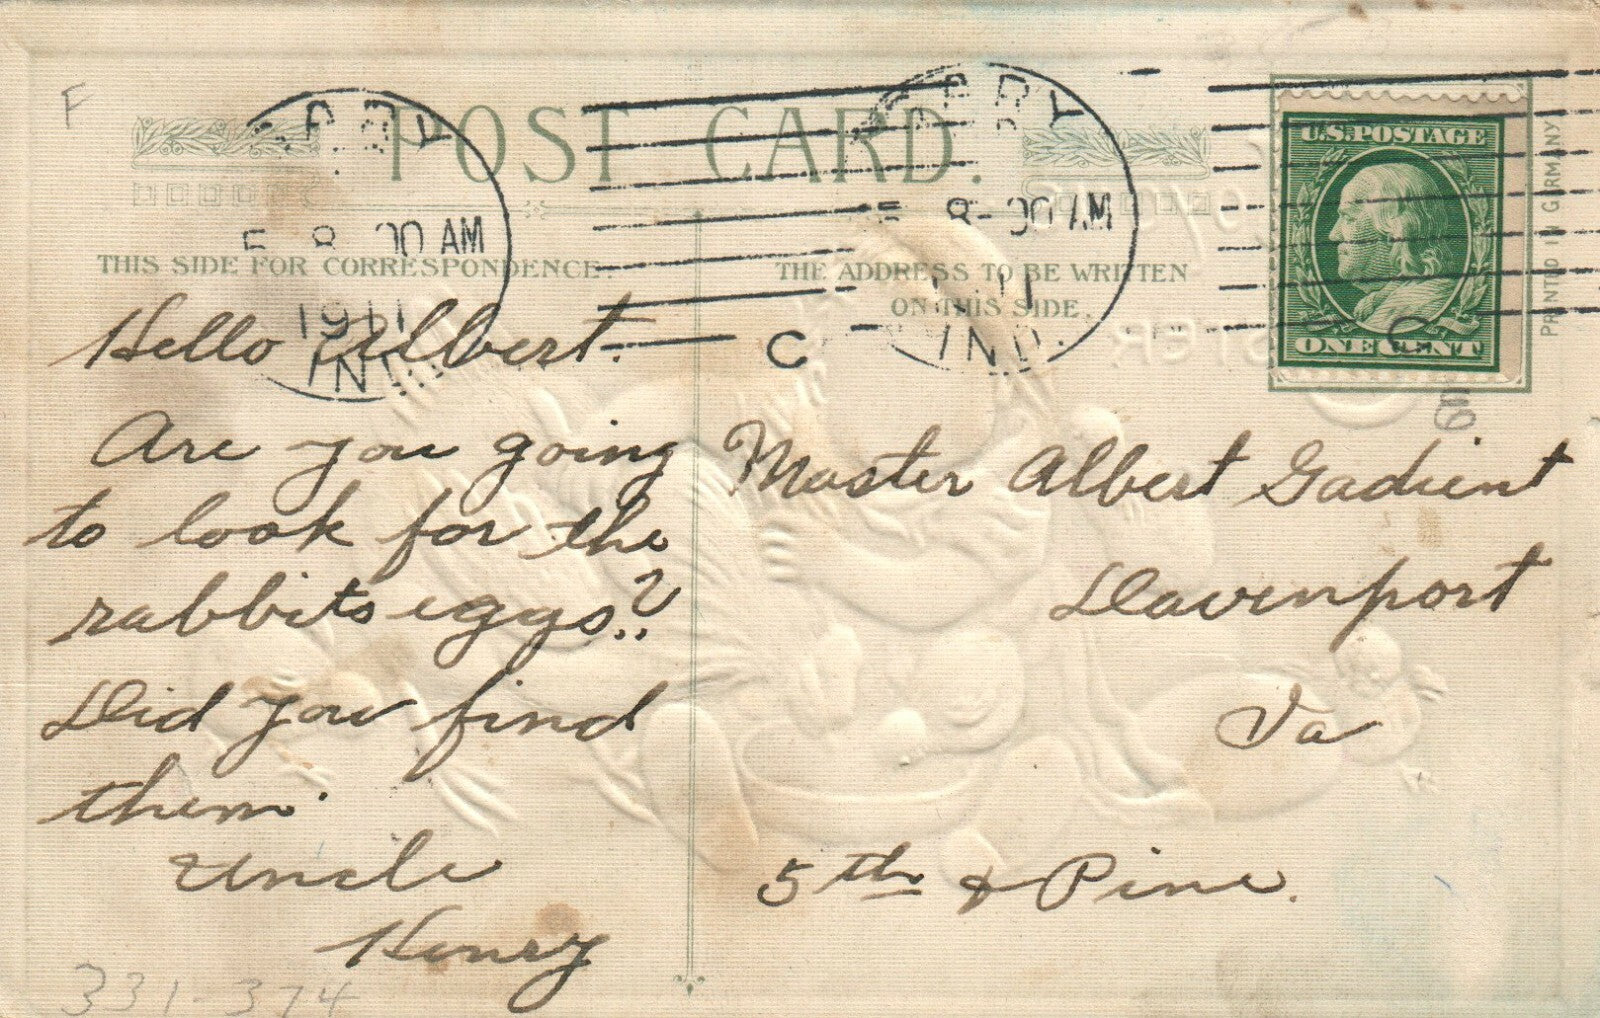 POST CARD.
THIS SIDE FOR CORRESPONDENCE.
THE ADDRESS TO BE WRITTEN
ON THIS SIDE.
8 00 AM
1911
IND.
8-00 AM
11
IND.
C
U.S. POSTAGE
ONE CENT
PRINTED IN GERMANY
F
Hello Albert.
Are you going
to look for the
rabbits eggs?
Did you find
them.
Uncle
Henry
331-374
Master Albert Gadient
Davenport
Ia
5th & Pine.